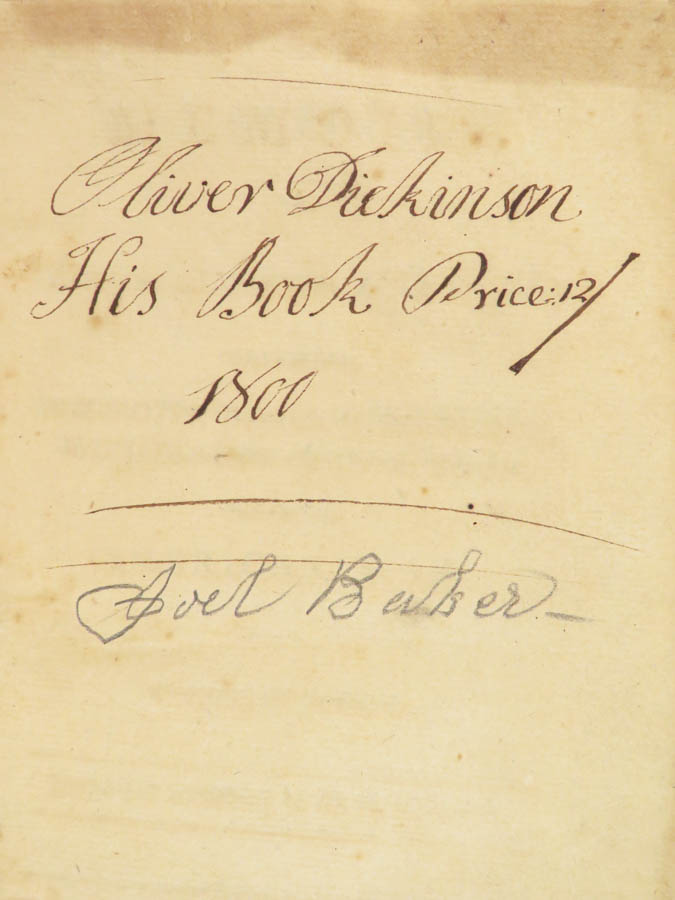 Oliver Dickinson
His Book Price: 12/
1800
Joel Baker